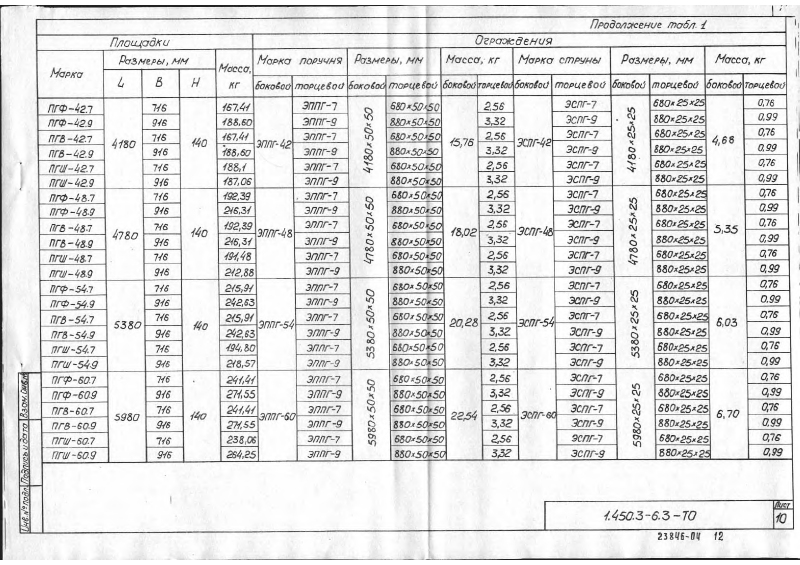 Продолжение табл. 1
Площадки Ограждения
Марка Размеры, мм Масса, кг Марка поручня Размеры, мм Масса, кг Марка струны Размеры, мм Масса, кг
L В Н боковой торцевой боковой торцевой боковой торцевой боковой торцевой боковой торцевой боковой торцевой
ПГФ-42.7 4180 716 140 167,41 ЭППГ-42 ЭППГ-7 4180×50×50 680×50×50 15,76 2,56 ЭСПГ-42 ЭСПГ-7 4180×25×25 680×25×25 4,68 0,76
ПГФ-42.9 916 188,60 ЭППГ-9 880×50×50 3,32 ЭСПГ-9 880×25×25 0,99
ПГВ-42.7 716 167,41 ЭППГ-7 680×50×50 2,56 ЭСПГ-7 680×25×25 0,76
ПГВ-42.9 916 188,60 ЭППГ-9 880×50×50 3,32 ЭСПГ-9 880×25×25 0,99
ПГШ-42.7 716 188,1 ЭППГ-7 680×50×50 2,56 ЭСПГ-7 680×25×25 0,76
ПГШ-42.9 916 187,06 ЭППГ-9 880×50×50 3,32 ЭСПГ-9 880×25×25 0,99
ПГФ-48.7 4780 716 140 192,39 ЭППГ-48 ЭППГ-7 4780×50×50 680×50×50 18,02 2,56 ЭСПГ-48 ЭСПГ-7 4780×25×25 680×25×25 5,35 0,76
ПГФ-48.9 916 216,31 ЭППГ-9 880×50×50 3,32 ЭСПГ-9 880×25×25 0,99
ПГВ-48.7 716 192,39 ЭППГ-7 680×50×50 2,56 ЭСПГ-7 680×25×25 0,76
ПГВ-48.9 916 216,31 ЭППГ-9 880×50×50 3,32 ЭСПГ-9 880×25×25 0,99
ПГШ-48.7 716 191,48 ЭППГ-7 680×50×50 2,56 ЭСПГ-7 680×25×25 0,76
ПГШ-48.9 916 212,88 ЭППГ-9 880×50×50 3,32 ЭСПГ-9 880×25×25 0,99
ПГФ-54.7 5380 716 140 215,91 ЭППГ-54 ЭППГ-7 5380×50×50 680×50×50 20,28 2,56 ЭСПГ-54 ЭСПГ-7 5380×25×25 680×25×25 6,03 0,76
ПГФ-54.9 916 242,63 ЭППГ-9 880×50×50 3,32 ЭСПГ-9 880×25×25 0,99
ПГВ-54.7 716 215,91 ЭППГ-7 680×50×50 2,56 ЭСПГ-7 680×25×25 0,76
ПГВ-54.9 916 242,63 ЭППГ-9 880×50×50 3,32 ЭСПГ-9 880×25×25 0,99
ПГШ-54.7 716 194,80 ЭППГ-7 680×50×50 2,56 ЭСПГ-7 680×25×25 0,76
ПГШ-54.9 916 218,57 ЭППГ-9 880×50×50 3,32 ЭСПГ-9 880×25×25 0,99
ПГФ-60.7 5980 716 140 241,41 ЭППГ-60 ЭППГ-7 5980×50×50 680×50×50 22,54 2,56 ЭСПГ-60 ЭСПГ-7 5980×25×25 680×25×25 6,70 0,76
ПГФ-60.9 916 271,55 ЭППГ-9 880×50×50 3,32 ЭСПГ-9 880×25×25 0,99
ПГВ-60.7 716 241,41 ЭППГ-7 680×50×50 2,56 ЭСПГ-7 680×25×25 0,76
ПГВ-60.9 916 271,55 ЭППГ-9 880×50×50 3,32 ЭСПГ-9 880×25×25 0,99
ПГШ-60.7 716 238,06 ЭППГ-7 680×50×50 2,56 ЭСПГ-7 680×25×25 0,76
ПГШ-60.9 916 264,25 ЭППГ-9 880×50×50 3,32 ЭСПГ-9 880×25×25 0,99
Инв.№ подл. Подпись и дата Взам.инв.№
1.450.3-6.3-ТО
Лист
10
23846-04 12